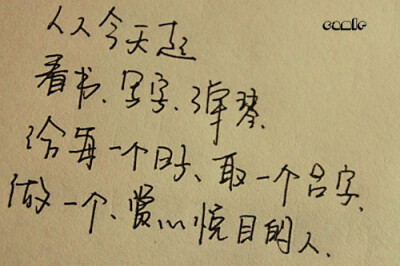 从今天起
看书、写字、弹琴、
给每一个日子、取一个名字、
做一个、赏心悦目的人、